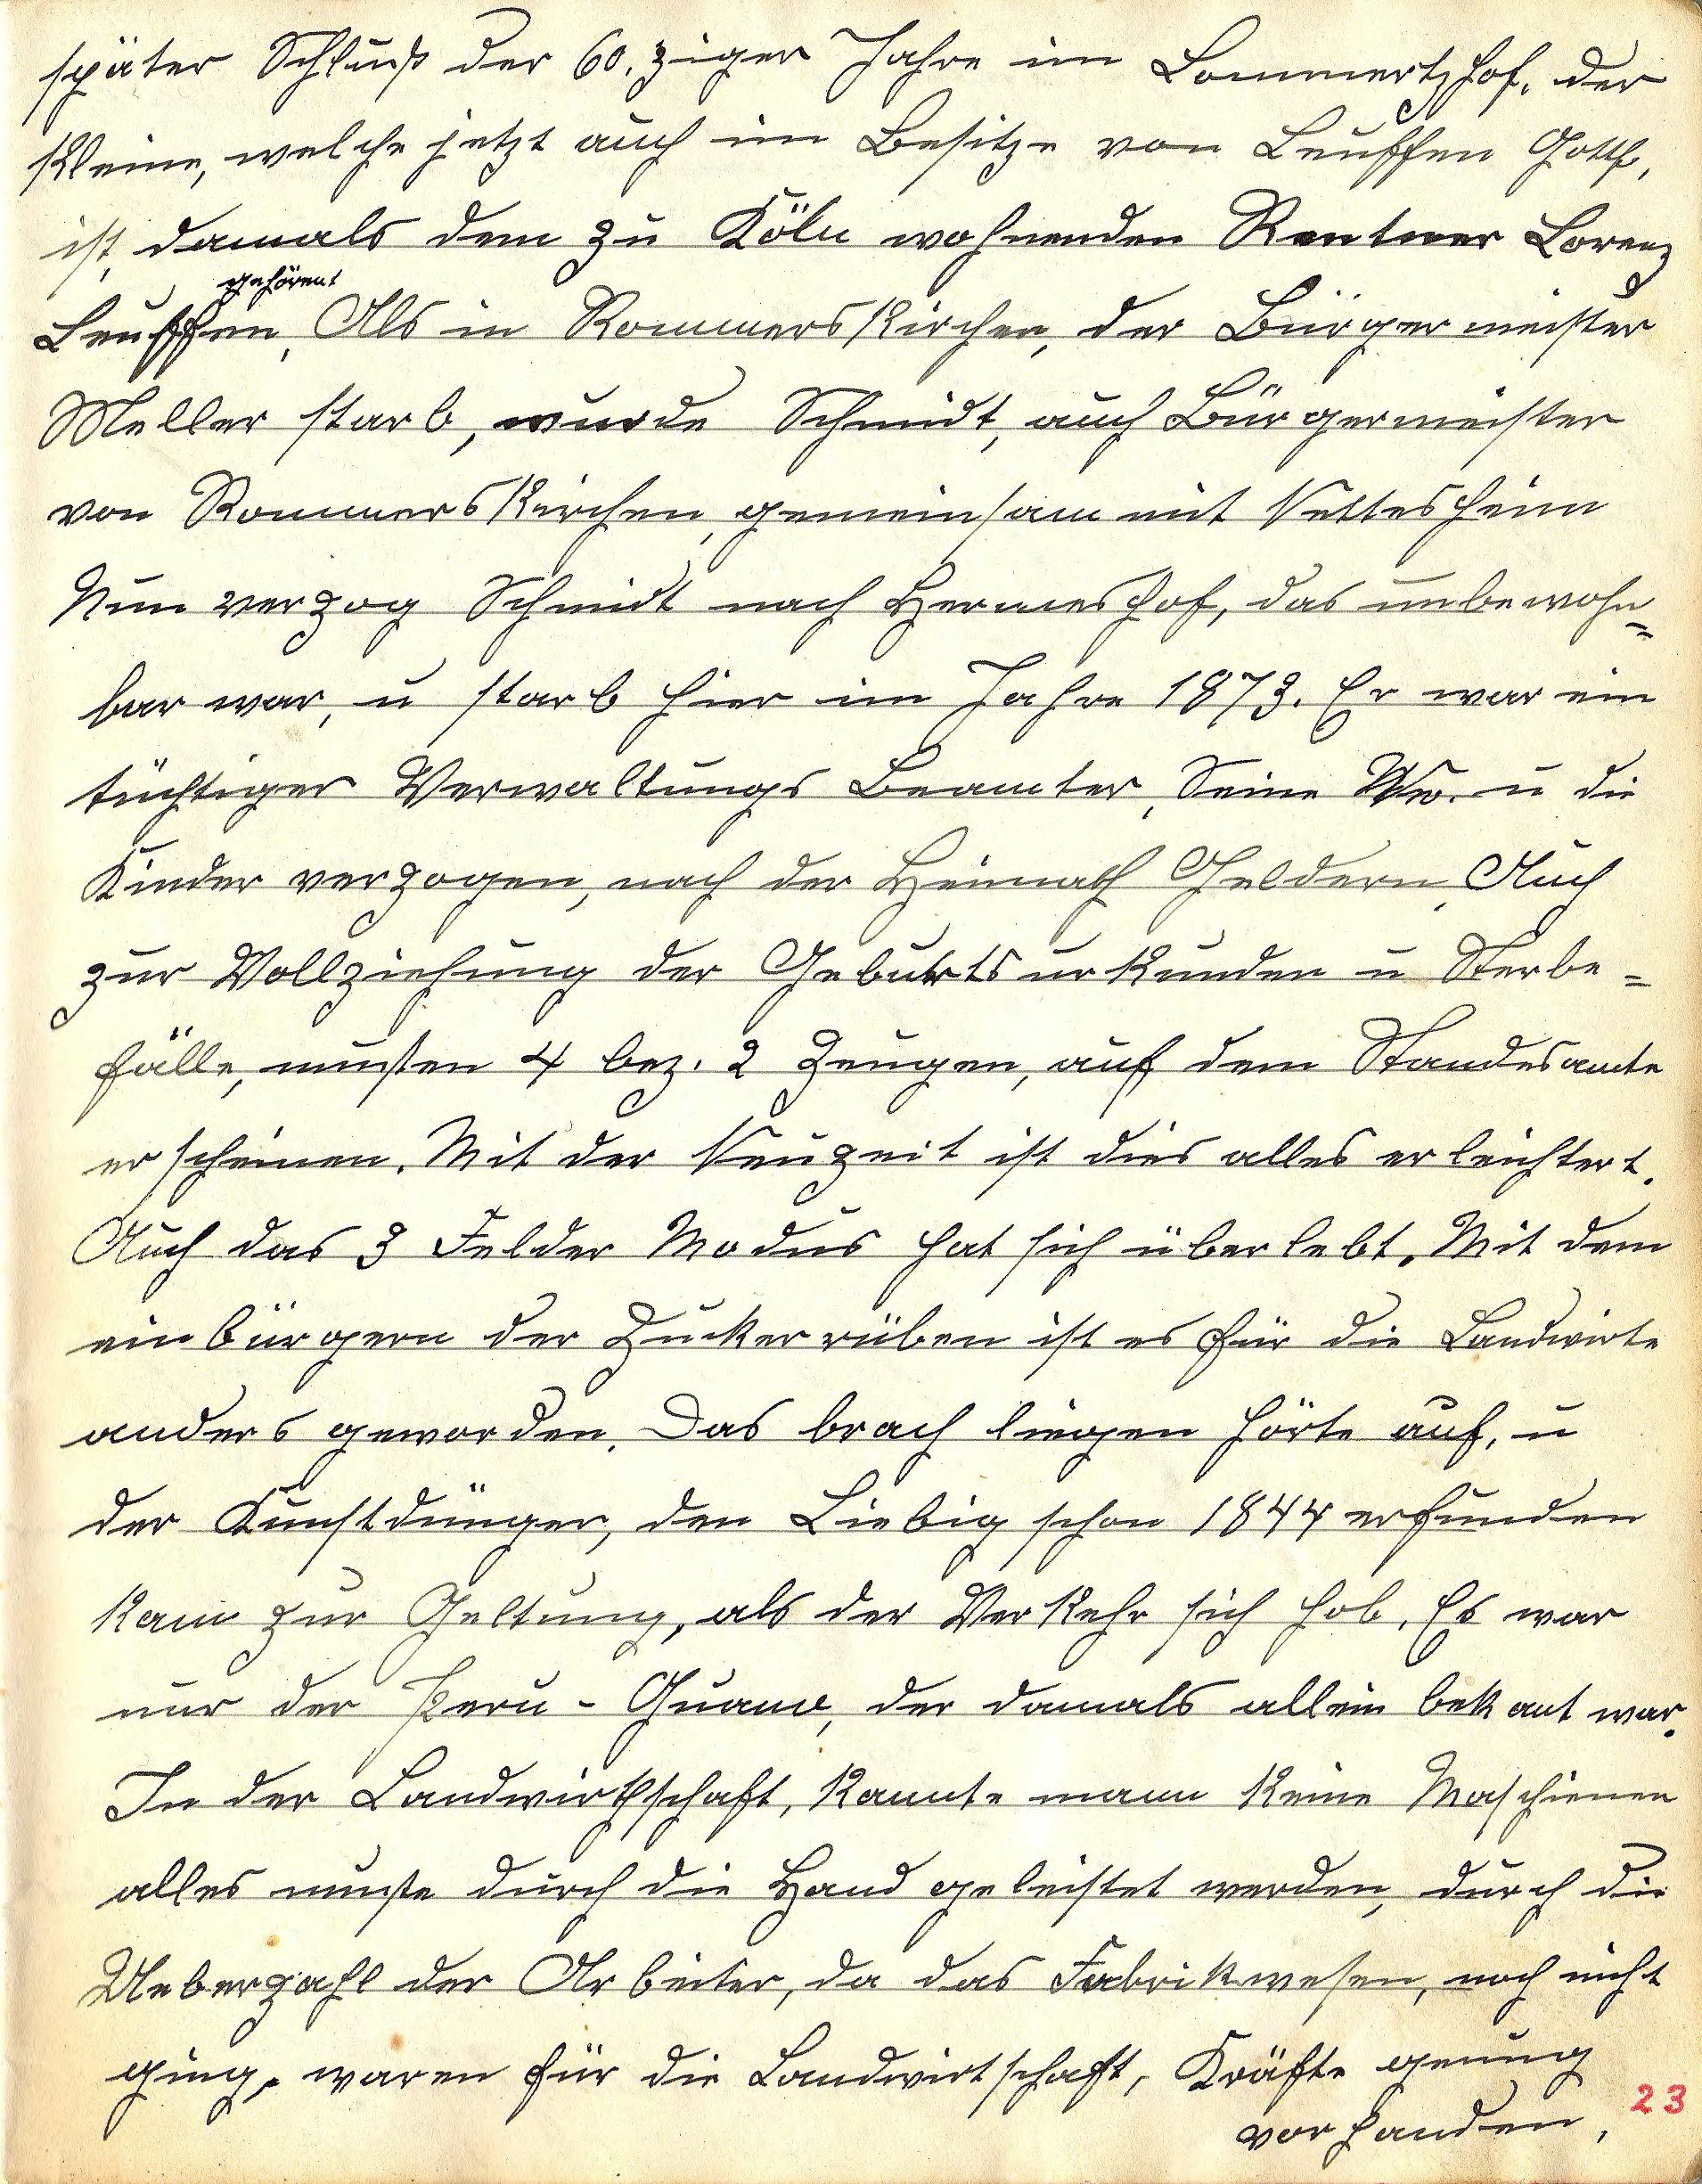 später Schluß der 60.ziger Jahre im Lommertzhof, der
kleine, welche jetzt auch im Besitze von Leuffen Gottf,
ist, damals dem zu Köln wohnenden Rentner Lorenz
gehörent
Leuffen, Als in Rommerskirchen, der Bürgermeister
Meller starb, wurde Schmidt, auch Bürgermeister
von Rommerskirchen, gemeinsam mit Nettesheim
Nun verzog Schmidt nach Hermeshof, das unbewohn=
bar war, u starb hier im Jahre 1873. Er war ein
tüchtiger Verwaltungs Beamter, Seine Ww. u die
Kinder verzogen, nach der Heimath Geldern, Auch
zur Vollziehung der Geburtsurkunden u Sterbe=
fälle, mußten 4 bez. 2 Zeugen, auf dem Standesamte
erscheinen. Mit der Neuzeit ist dies alles erleichtert.
Auch das 3 Felder Modus hat sich überlebt. Mit dem
einbürgern der Zuckerrüben ist es für die Landwirte
anders geworden. Das brach liegen hörte auf, u
der Kunstdünger, den Liebig schon 1844 erfunden
kam zur Geltung, als der Verkehr sich hob. Es war
nur der Peru-Guano, der damals allein bekant war.
In der Landwirthschaft, kannte mann keine Maschienen
alles mußte durch die Hand geleistet werden, durch die
Ueberzahl der Arbeiter, da das Fabrikwesen, noch nicht
ging, waren für die Landwirtschaft, Kräfte genug
vorhanden,
23